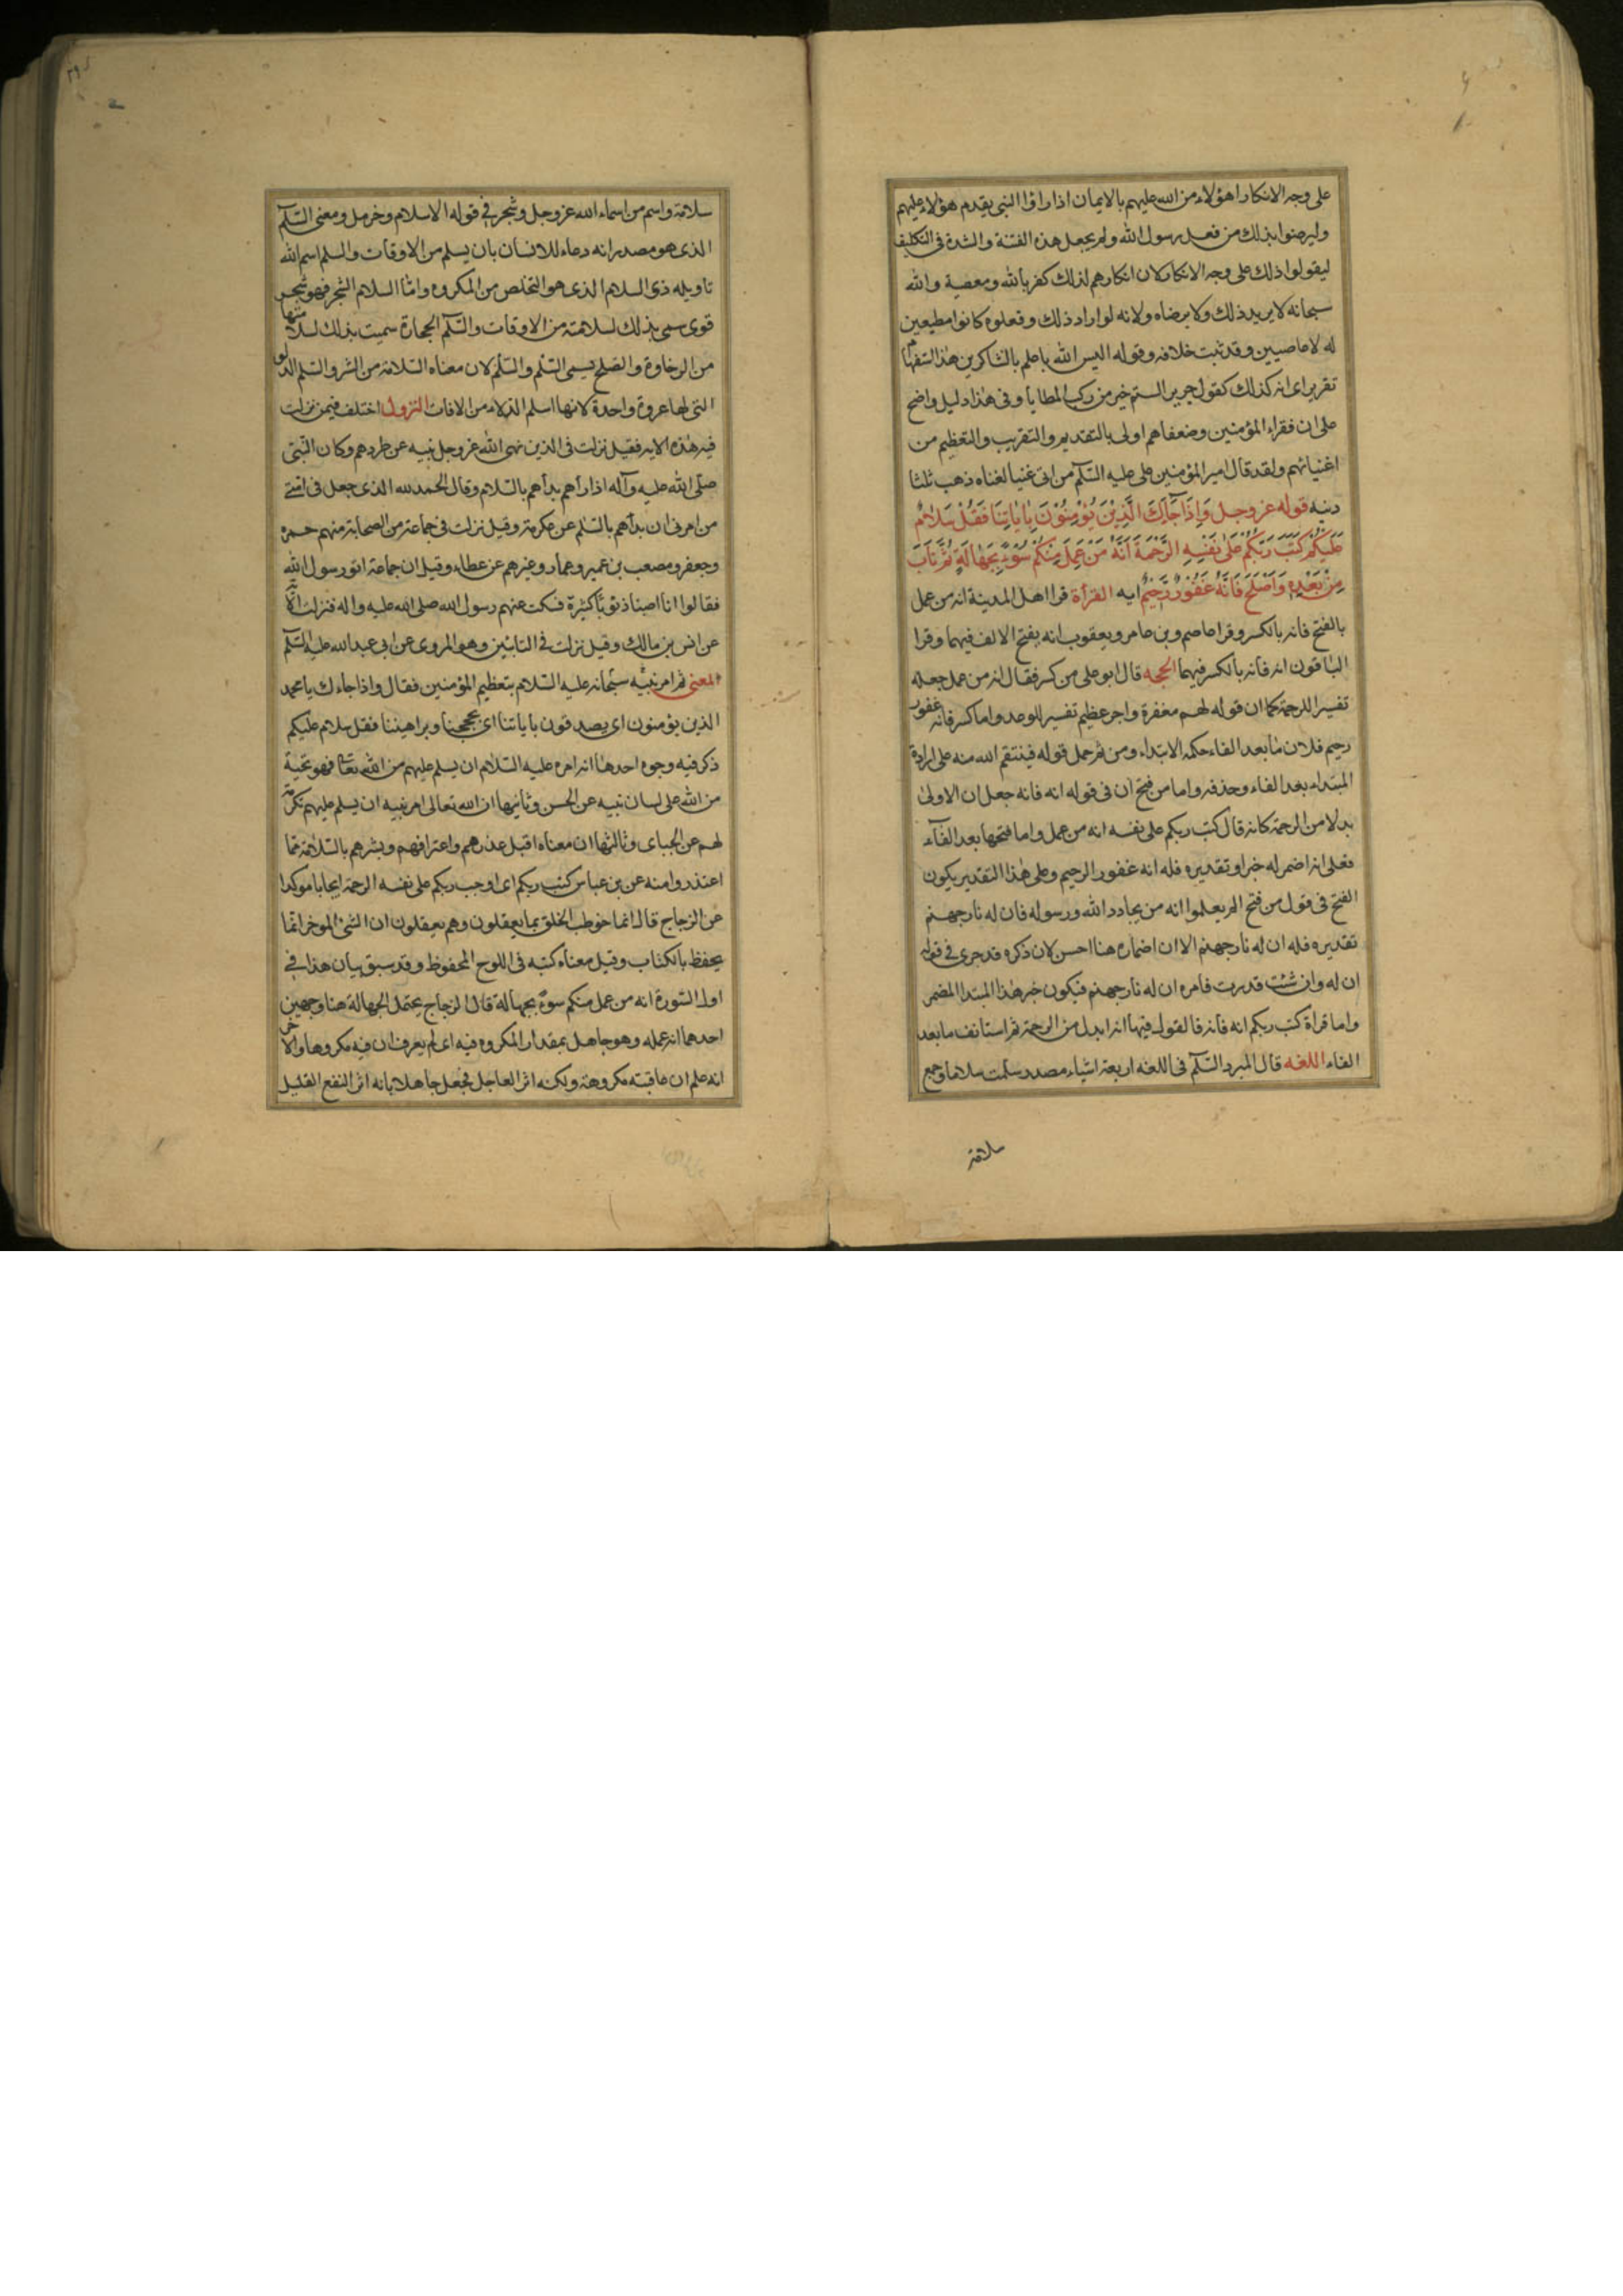 على وجه الانكار اهؤلاء من الله عليهم بالايمان اذا راوا النبى يقدم هؤلاء عليهم
وليرضوا بذلك من فعل رسول الله ولم يجعل هذه الفتنة والشدة فى التكليف
ليقولوا ذلك على وجه الانكار لان انكارهم لذلك كفر بالله ومعصية والله
سبحانه لا يريد ذلك ولا يرضاه ولانه لو اراد ذلك وفعلوه كانوا مطيعين
له لا عاصيين وقد ثبت خلافه وقوله اليس الله باعلم بالشاكرين هذا استفهام
تقرير اى انه كذلك كقول جرير الستم خير من ركب المطايا وفى هذا دليل واضح
على ان فقراء المؤمنين وضعفاهم اولى بالتقديم والتقريب والتعظيم من
اغنيائهم ولقد قال امير المؤمنين على عليه السلم من اتى غنيا لغناه ذهب ثلثا
دينه قوله عز وجل وَاِذَا جَآءَكَ الَّذِيْنَ يُؤْمِنُوْنَ بِاٰيَاتِنَا فَقُلْ سَلَامٌ
عَلَيْكُمْ كَتَبَ رَبُّكُمْ عَلٰى نَفْسِهِ الرَّحْمَةَ اَنَّهُ مَنْ عَمِلَ مِنْكُمْ سُوْءً بِجَهَالَةٍ ثُمَّ تَابَ
مِنْ بَعْدِهِ وَاَصْلَحَ فَاَنَّهُ غَفُوْرٌ رَّحِيْمٌ ايه القراة قرا اهل المدينة انه من عمل
بالفتح فانه بالكسر وقرا عاصم وبن عامر ويعقوب انه بفتح الالف فيهما وقرا
الباقون انه فانه بالكسر فيهما الحجه قال ابو على من كسر فقال انه من عمل جعله
تفسيرا للرحمة كما ان قوله لهم مغفرة واجر عظيم تفسير للوعد واما كسر فانه غفور
رحيم فلان ما بعد الفاء حكمه الابتداء ومن ثم حمل قوله فينتقم الله منه على ارادة
المبتداء بعد الفاء وحذفه واما من فتح ان فى قوله انه فانه جعل ان الاولى
بدلا من الرحمة كانه قال كتب ربكم على نفسه انه من عمل واما فتحها بعد الفآء
فعلى انه اضمر له خبرا وتقديره فله انه غفور الرحيم وعلى هذا التقدير يكون
الفتح فى قول من فتح الم يعلموا انه من يحادد الله ورسوله فان له نار جهنم
تقديره فله ان له نار جهنم الا ان اضماره هنا احسن لان ذكره قد جرى فى قوله
ان له وان شئت قدرت فامره ان له نار جهنم فيكون خبر هذا المبتدا المضمر
واما قراة كتب ربكم انه فانه فالقول فيها انه ابدل من الرحمة ثم استانف ما بعد
الفاء اللغه قال المبرد السلم فى اللغه اربعة اشياء مصدر سلمت سلاما وجمع
سلامة
سلامة واسم من اسماء الله عز وجل وشجر فى قوله الا سلام وخرمل ومعنى السلم
الذى هو مصدر انه دعاء للانسان بان يسلم من الاوقات والسلم اسم الله
تاويله ذى السلام الذى هو التخلص من المكروه واما السلام الشجر فهو شجر
قوى سمى بذلك لسلامته من الاوقات والسلم الحجارة سميت بذلك لسلامتها
من الرخاوة والصلح يسمى السلم والسلم لان معناه السلامة من الشر والسلم الدلو
التى لها عروة واحدة لانها اسلم الدلاء من الافات النزول اختلف فيمن نزلت
فيه هذه الايه فقيل نزلت فى الذين نهى الله عز وجل نبيه عن طردهم وكان النبى
صلى الله عليه وآله اذا رأهم بدأهم بالسلام وقال الحمد لله الذى جعل فى امتى
من امرنى ان بدأهم بالسلم عن عكرمة وقيل نزلت فى جماعة من الصحابة منهم حمزه
وجعفر ومصعب بن عمير وعمار وغيرهم عن عطاء وقيل ان جماعة اتو رسول الله
فقالوا انا اصبنا ذنوبا كثيرة فسكت عنهم رسول الله صلى الله عليه واله فنزلت الآية
عن انس بن مالك وقيل نزلت فى التائبين وهو المروى عن ابى عبد الله عليه السلم
المعنى ثم امر نبيه سبحانه عليه السلام بتعظيم المؤمنين فقال واذا جاءك يا محمد
الذين يؤمنون اى يصدقون باياتنا اى بحججنا وبراهيننا فقل سلام عليكم
ذكر فيه وجوه احدها انه امره عليه السلام ان يسلم عليهم من الله تعالى فهو تحية
من الله على لسان نبيه عن الحسن وثانيها ان الله تعالى امر نبيه ان يسلم عليهم تكرمة
لهم عن الجباى وثالثها ان معناه اقبل عذرهم واعترافهم وبشرهم بالسلامة مما
اعتذروا منه عن بن عباس كتب ربكم اى اوجب ربكم على نفسه الرحمة ايجابا موكدا
عن الزجاج قال انما خوطب الخلق بما يعقلون وهم يعقلون ان الشئ الموخر انما
يحفظ بالكتاب وقيل معناه كتبه فى اللوح المحفوظ وقد سبق بيان هذا فى
اول السورة انه من عمل منكم سوء بجهالة قال الزجاج يحتمل الجهالة هنا وجهين
احدهما انه عمله وهو جاهل بمقدار المكروه فيه اى لم يعرف ان فيه مكروها والاخر
انه علم ان عاقبته مكروهة ولكنه اثر العاجل فجعل جاهلا بانه اثر النفع القليل